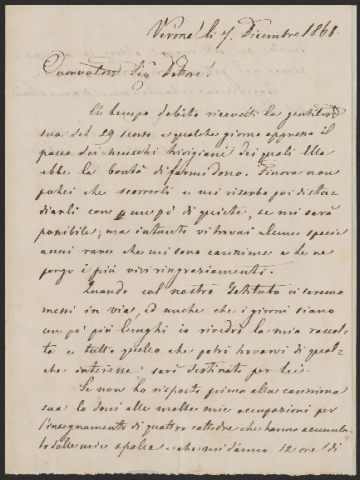 Verona li 7. Dicembre 1868.
Onorevolis. Sig. Dottore!
A tempo debito ricevetti la gentiliss.
sua del 29 scorso e qualche giorno appresso il
pacco dei muschi trivigiani dei quali Ella
ebbe la bontà di farmi dono. Finora non
potei che scorrerli e mi riserbo poi di stu-
diarli con un pò di quiete, se mi sarà
possibile; ma intanto vi trovai alcune specie
assai rare che mi sono carissime e Le ne
porgo i più vivi ringraziamenti.
Quando col nostro Istituto ci saremo
messi in via, ed anche che i giorni siano
un pò più lunghi io rivedrò la mia raccol-
ta e tutto quello che potrà trovarvi di qual-
che interesse sarà destinato per Lei.
Se non ho risposto prima alla carissima
sua lo devi alle molte mie occupazioni per
l'insegnamento di quattro cattedre che hanno accumula-
to sulle mie spalle e che mi danno 12 ore di